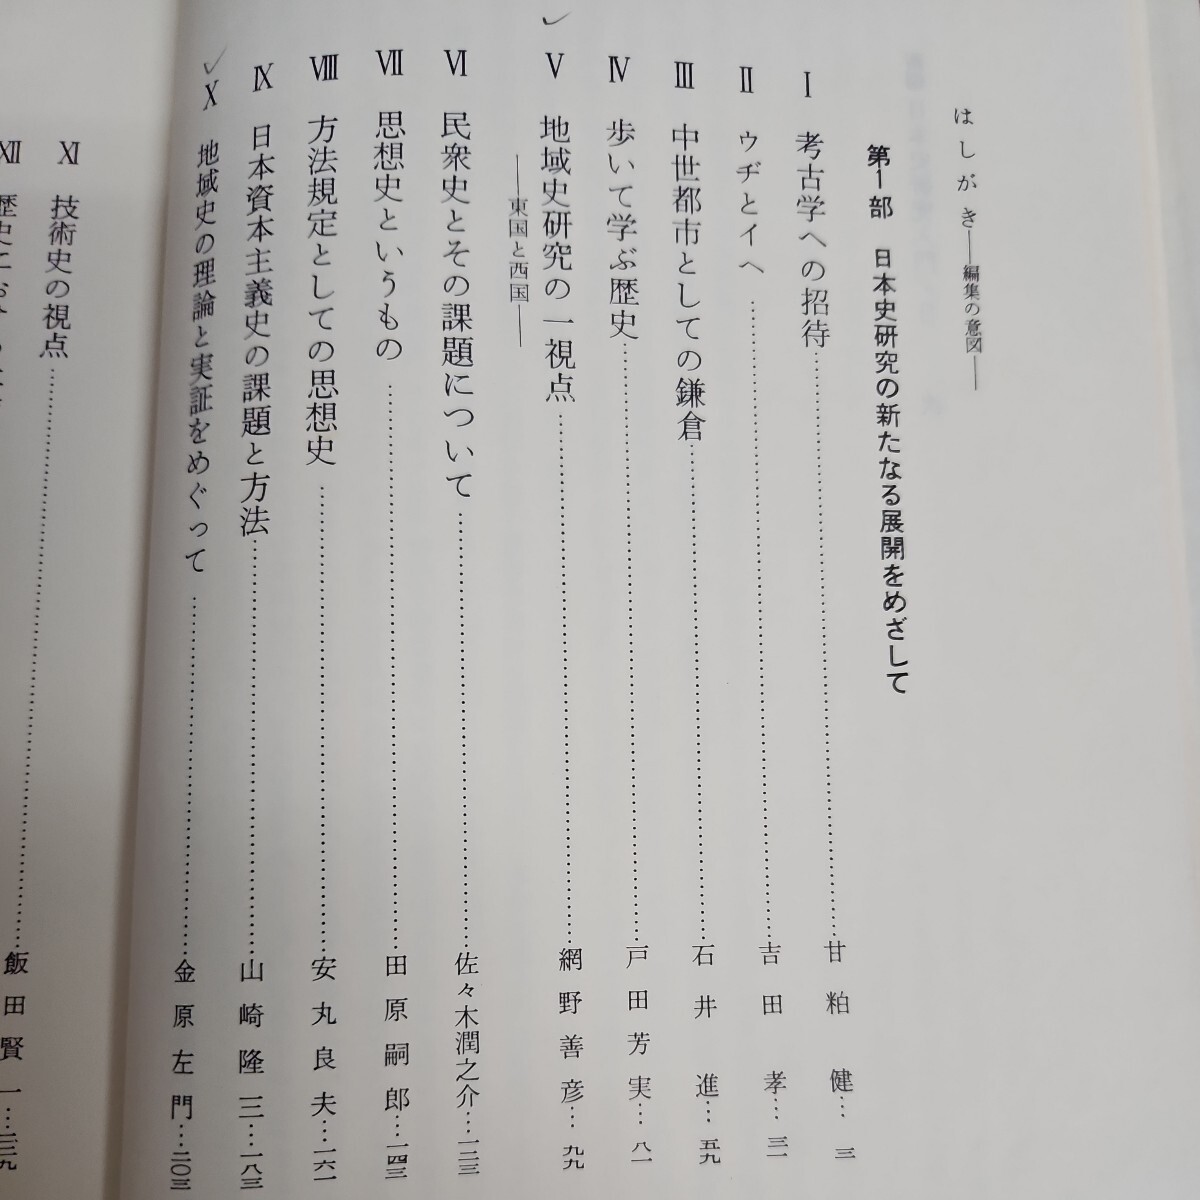 はしがき――編集の意図――
第1部 日本史研究の新たなる展開をめざして
Ⅰ 考古学への招待……甘粕 健…三
Ⅱ ウヂとイヘ……吉田 孝…三一
Ⅲ 中世都市としての鎌倉……石井 進…五九
Ⅳ 歩いて学ぶ歴史……戸田芳実…八一
Ⅴ 地域史研究の一視点……網野善彦…九九
――東国と西国――
Ⅵ 民衆史とその課題について……佐々木潤之介…一二三
Ⅶ 思想史というもの……田原嗣郎…一四三
Ⅷ 方法規定としての思想史……安丸良夫…一六一
Ⅸ 日本資本主義史の課題と方法……山崎隆三…一八三
Ⅹ 地域史の理論と実証をめぐって……金原左門…二〇三
Ⅺ 技術史の視点……飯田賢一…二二九
Ⅻ 歴史にお